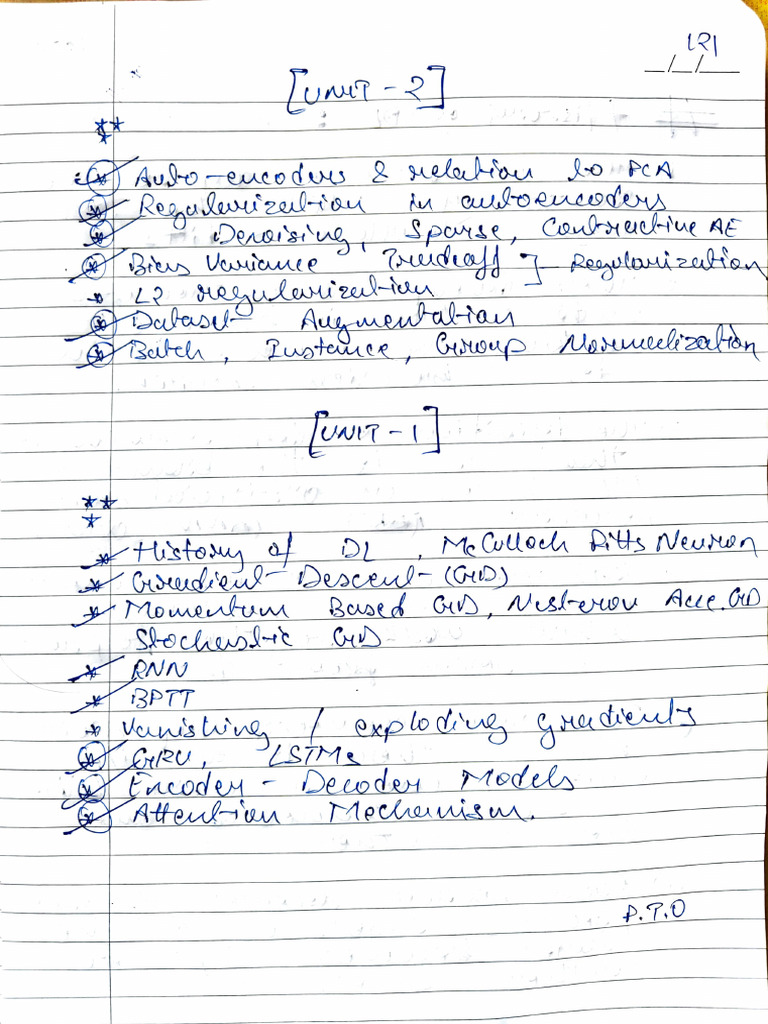 121
_/_/_
[UNIT-2]
Auto-encoders & relation to PCA
Regularization in autoencoders
Denoising, Sparse, Contractive AE
Bias Variance Tradeoff ]- Regularization
L2 regularization
Dataset Augmentation
Batch, Instance, Group Normalization
[UNIT-1]
History of DL, McCulloch Pitts Neuron
Gradient Descent (GD)
Momentum Based GD, Nesterov Acc. GD
Stochastic GD
RNN
BPTT
Vanishing / exploding gradients
GRU, LSTMs
Encoder-Decoder Models
Attention Mechanism.
P.T.O